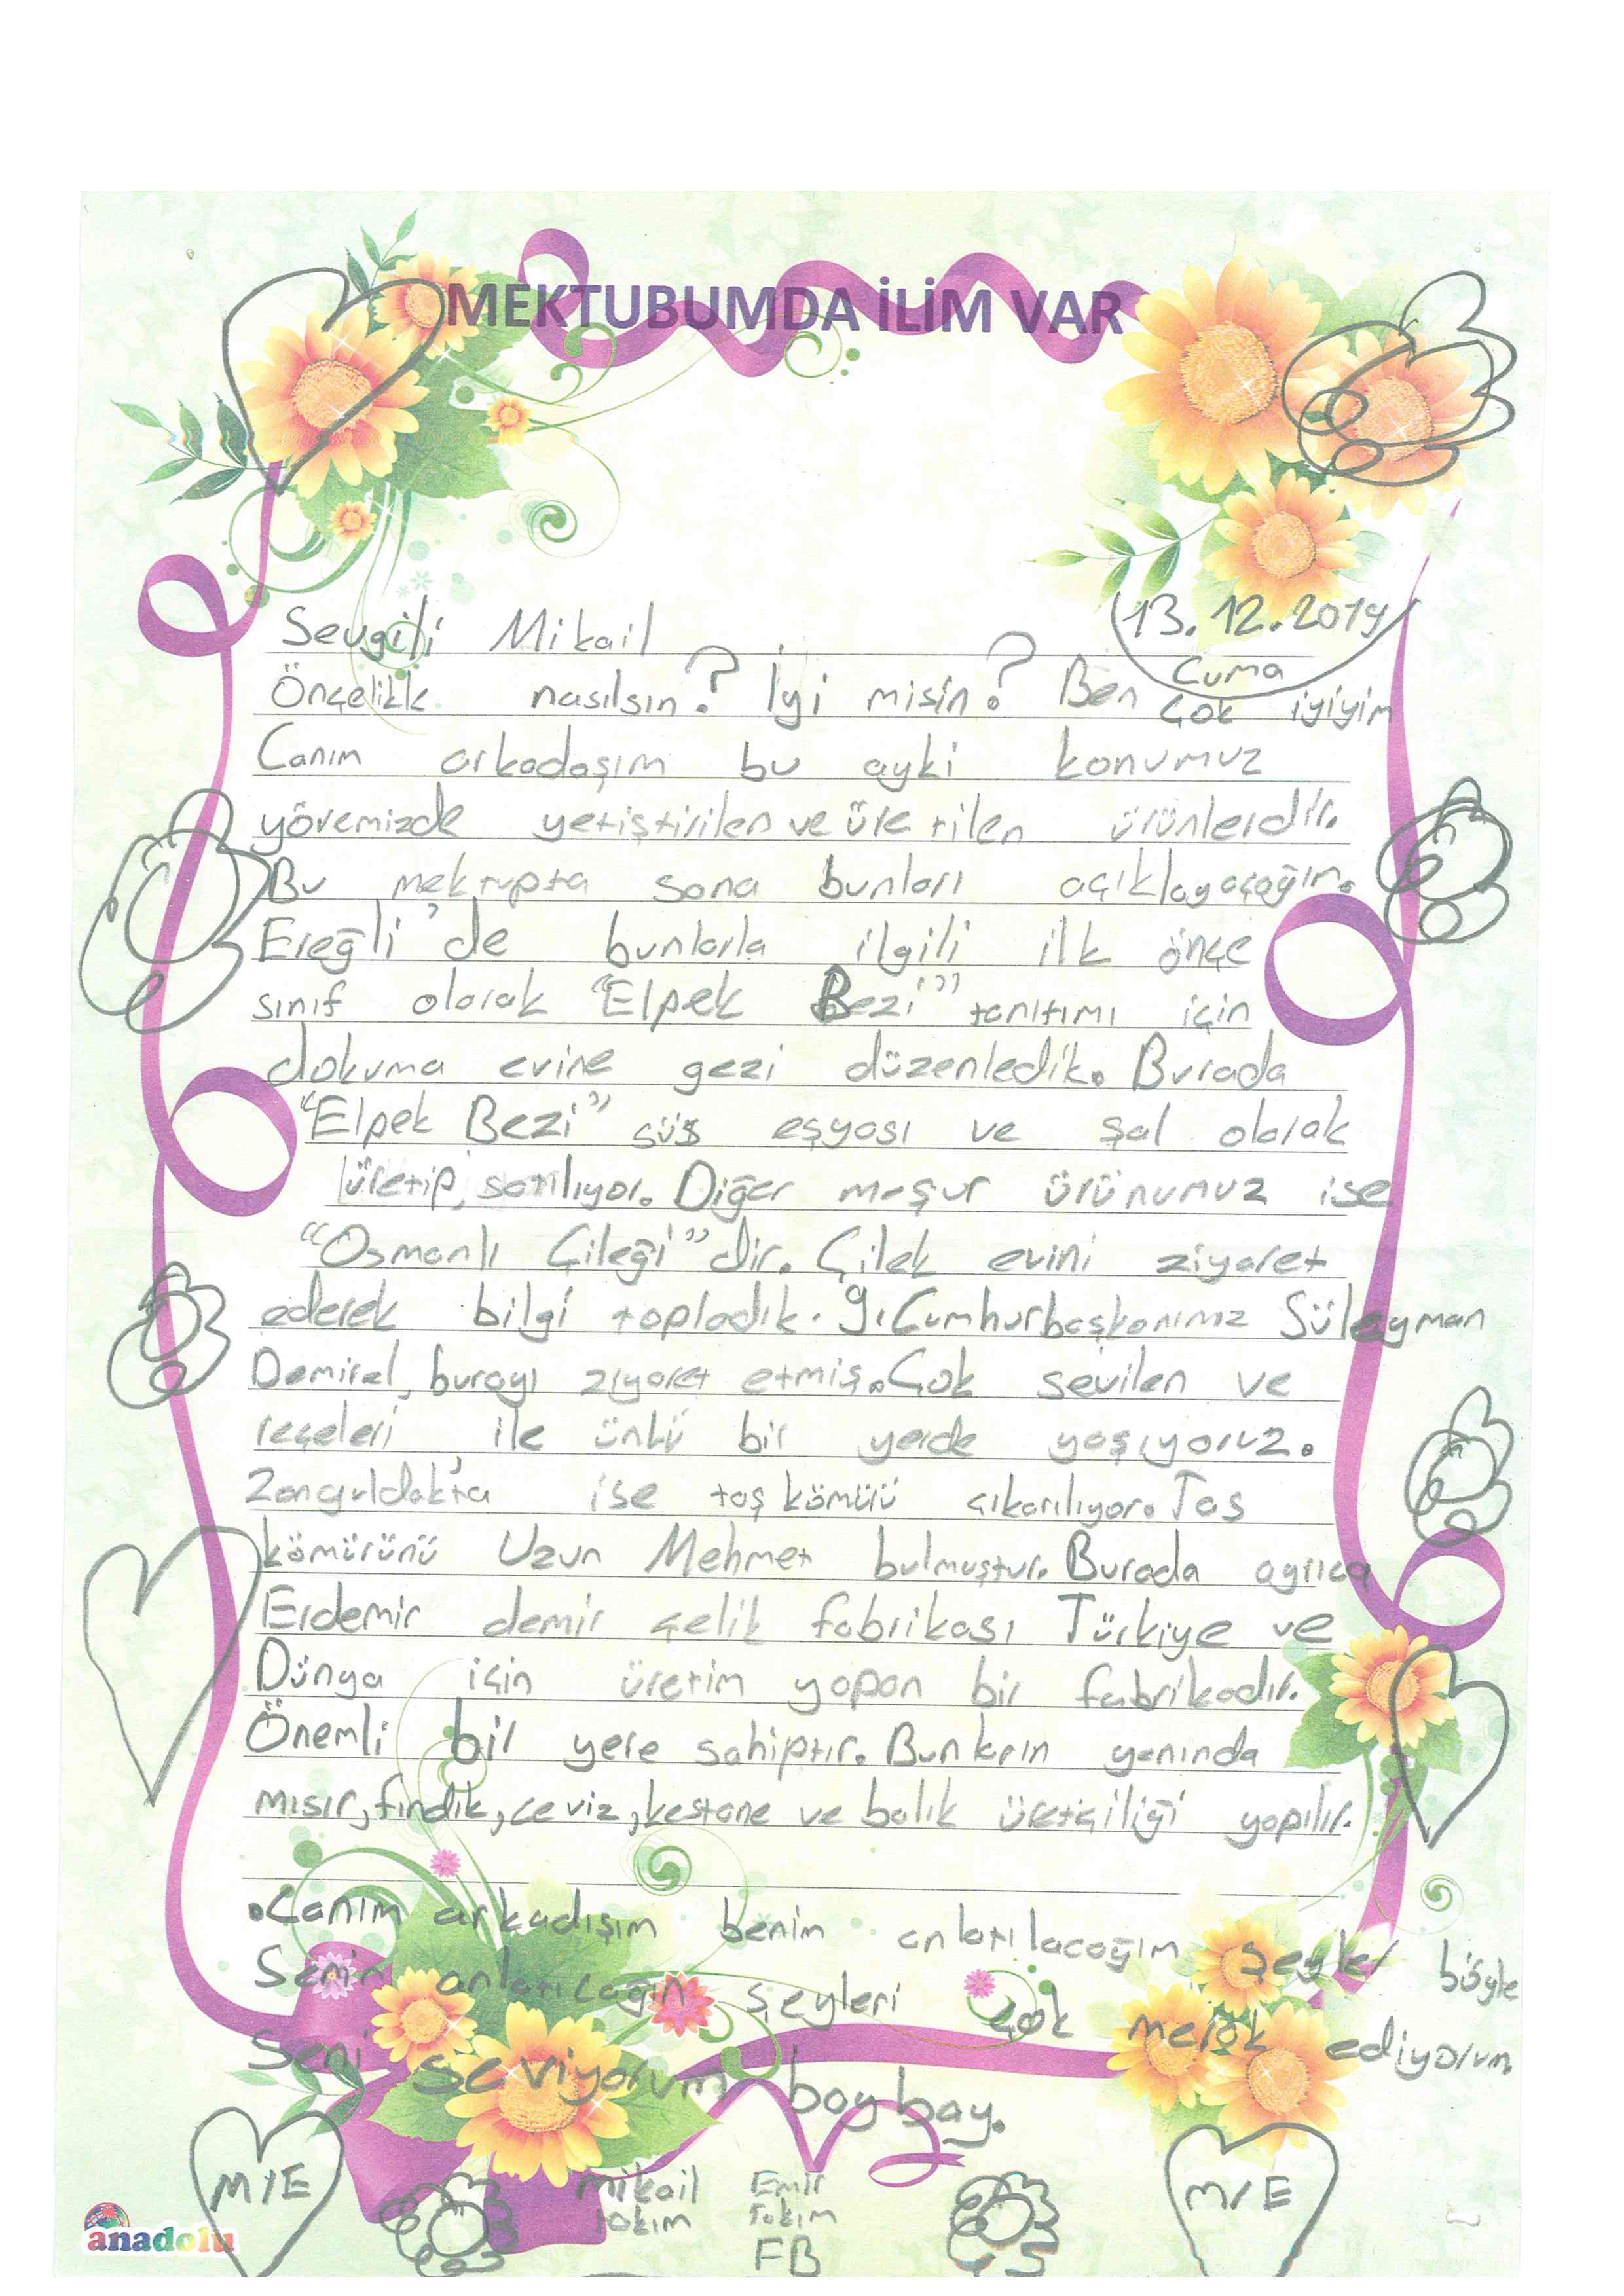 MEKTUBUMDA İLİM VAR
13.12.2019
Cuma
Sevgili Mikail
Önçelikk nasılsın? İyi misin? Ben çok iyiyim
Canım arkadaşım bu ayki konumuz
yöremizde yetiştirilen ve üretilen ürünlerdir.
Bu mektupta sana bunları açıklayaçağım.
Ereğli'de bunlarla ilgili ilk önçe
sınıf olarak "Elpek Bezi" tanıtımı için
dokuma evine gezi düzenledik. Burada
"Elpek Bezi" süs eşyası ve şal olarak
üretip, satılıyor. Diğer meşur ürünümüz ise
"Osmanlı Çileği"dir. Çilek evini ziyaret
ederek bilgi topladık. 9. Cumhurbaşkanımız Süleyman
Demirel, burayı ziyaret etmiş. Çok sevilen ve
reçeleri ile ünlü bir yerde yaşıyoruz.
Zonguldak'ta ise taş kömürü çıkarılıyor. Taş
kömürünü Uzun Mehmet bulmuştur. Burada ayrıca
Erdemir demir çelik fabrikası Türkiye ve
Dünya için üretim yapan bir fabrikadır.
Önemli bir yere sahiptir. Bunların yanında
mısır, fındık, ceviz, kestane ve balık üretiçiliği yapılır.
.Canım arkadışım benim anlatılacağım şeyler böyle
Senin anlatıcağın şeyleri çok merak ediyorum
Seni seviyorum bay bay.
M/E
mikail Emir
takım takım
FB
M/E
anadolu